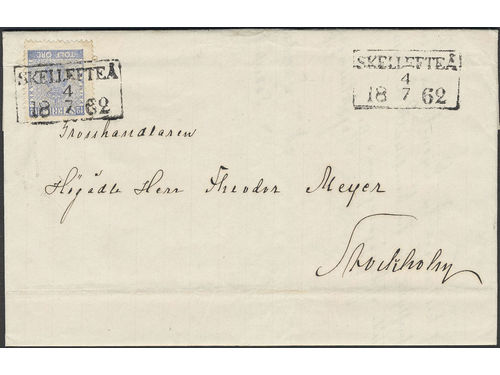 TOLF ÖRE
SKELLEFTEÅ
4
18 7 62
SKELLEFTEÅ
4
18 7 62
Grosshandlaren
Högädle Herr Theodor Meyer
Stockholm